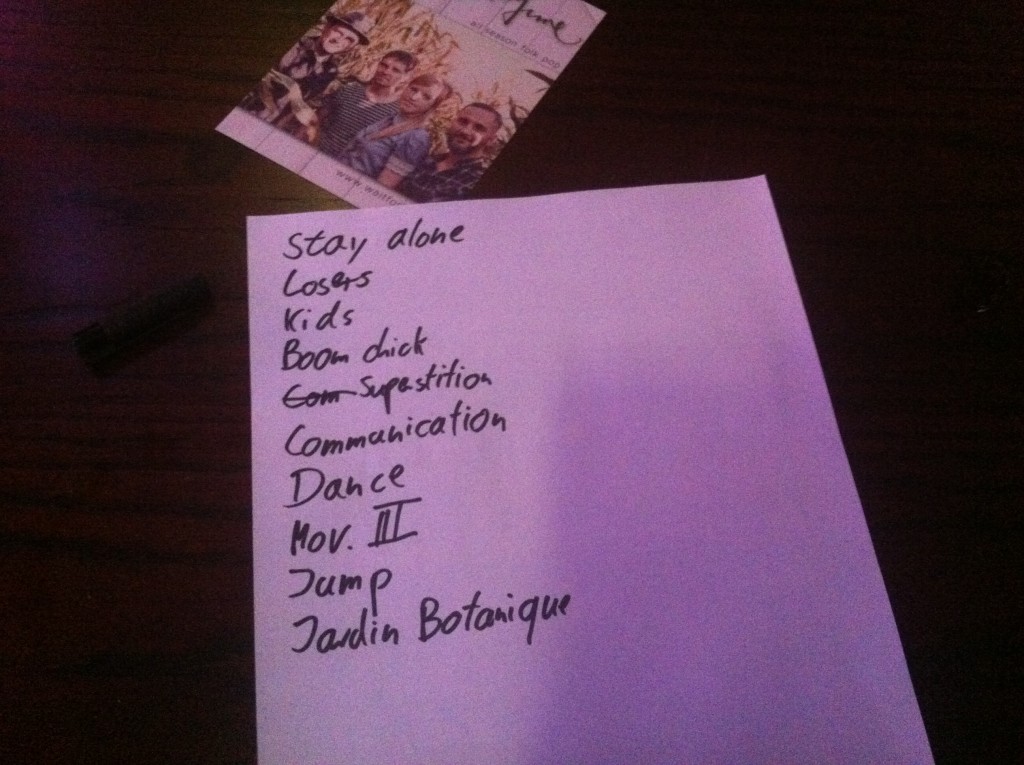 June
all season folk pop
www.waitfor
Stay alone
Losers
Kids
Boom chick
Com Superstition
Communication
Dance
Mov. III
Jump
Jardin Botanique